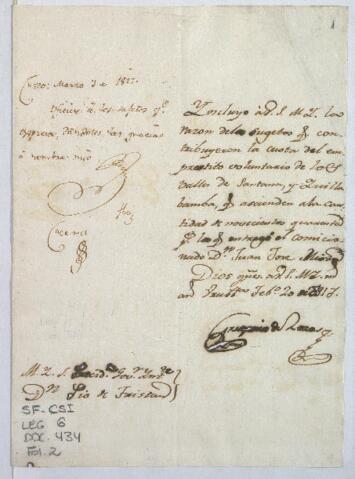 Cuzco: Marzo 3 de 1817.
á los sujetos qe.
expresa, dandoles las gracias
á nombre mio
Caceres
Yncluyo á V. S. M. Y. la
razon de los sugetos q con
tribuyeron la cuota del em
prestito voluntario de los
Valles de Santana, y Quilla
bamba, q ascienden a la can
tidad de novecientos quarenta
ps. los q entregó el comicio
nado Dn. Juan Jose
Dios gue. a V. S. M. Y.
Febo. 20 de 1817.
Gregorio de
M. Y. S. Presid.te Gov.r Ynt.te
Dn. Pio de Tristan
SF-CSI
LEG 6
DOC. 434
Fol. 2